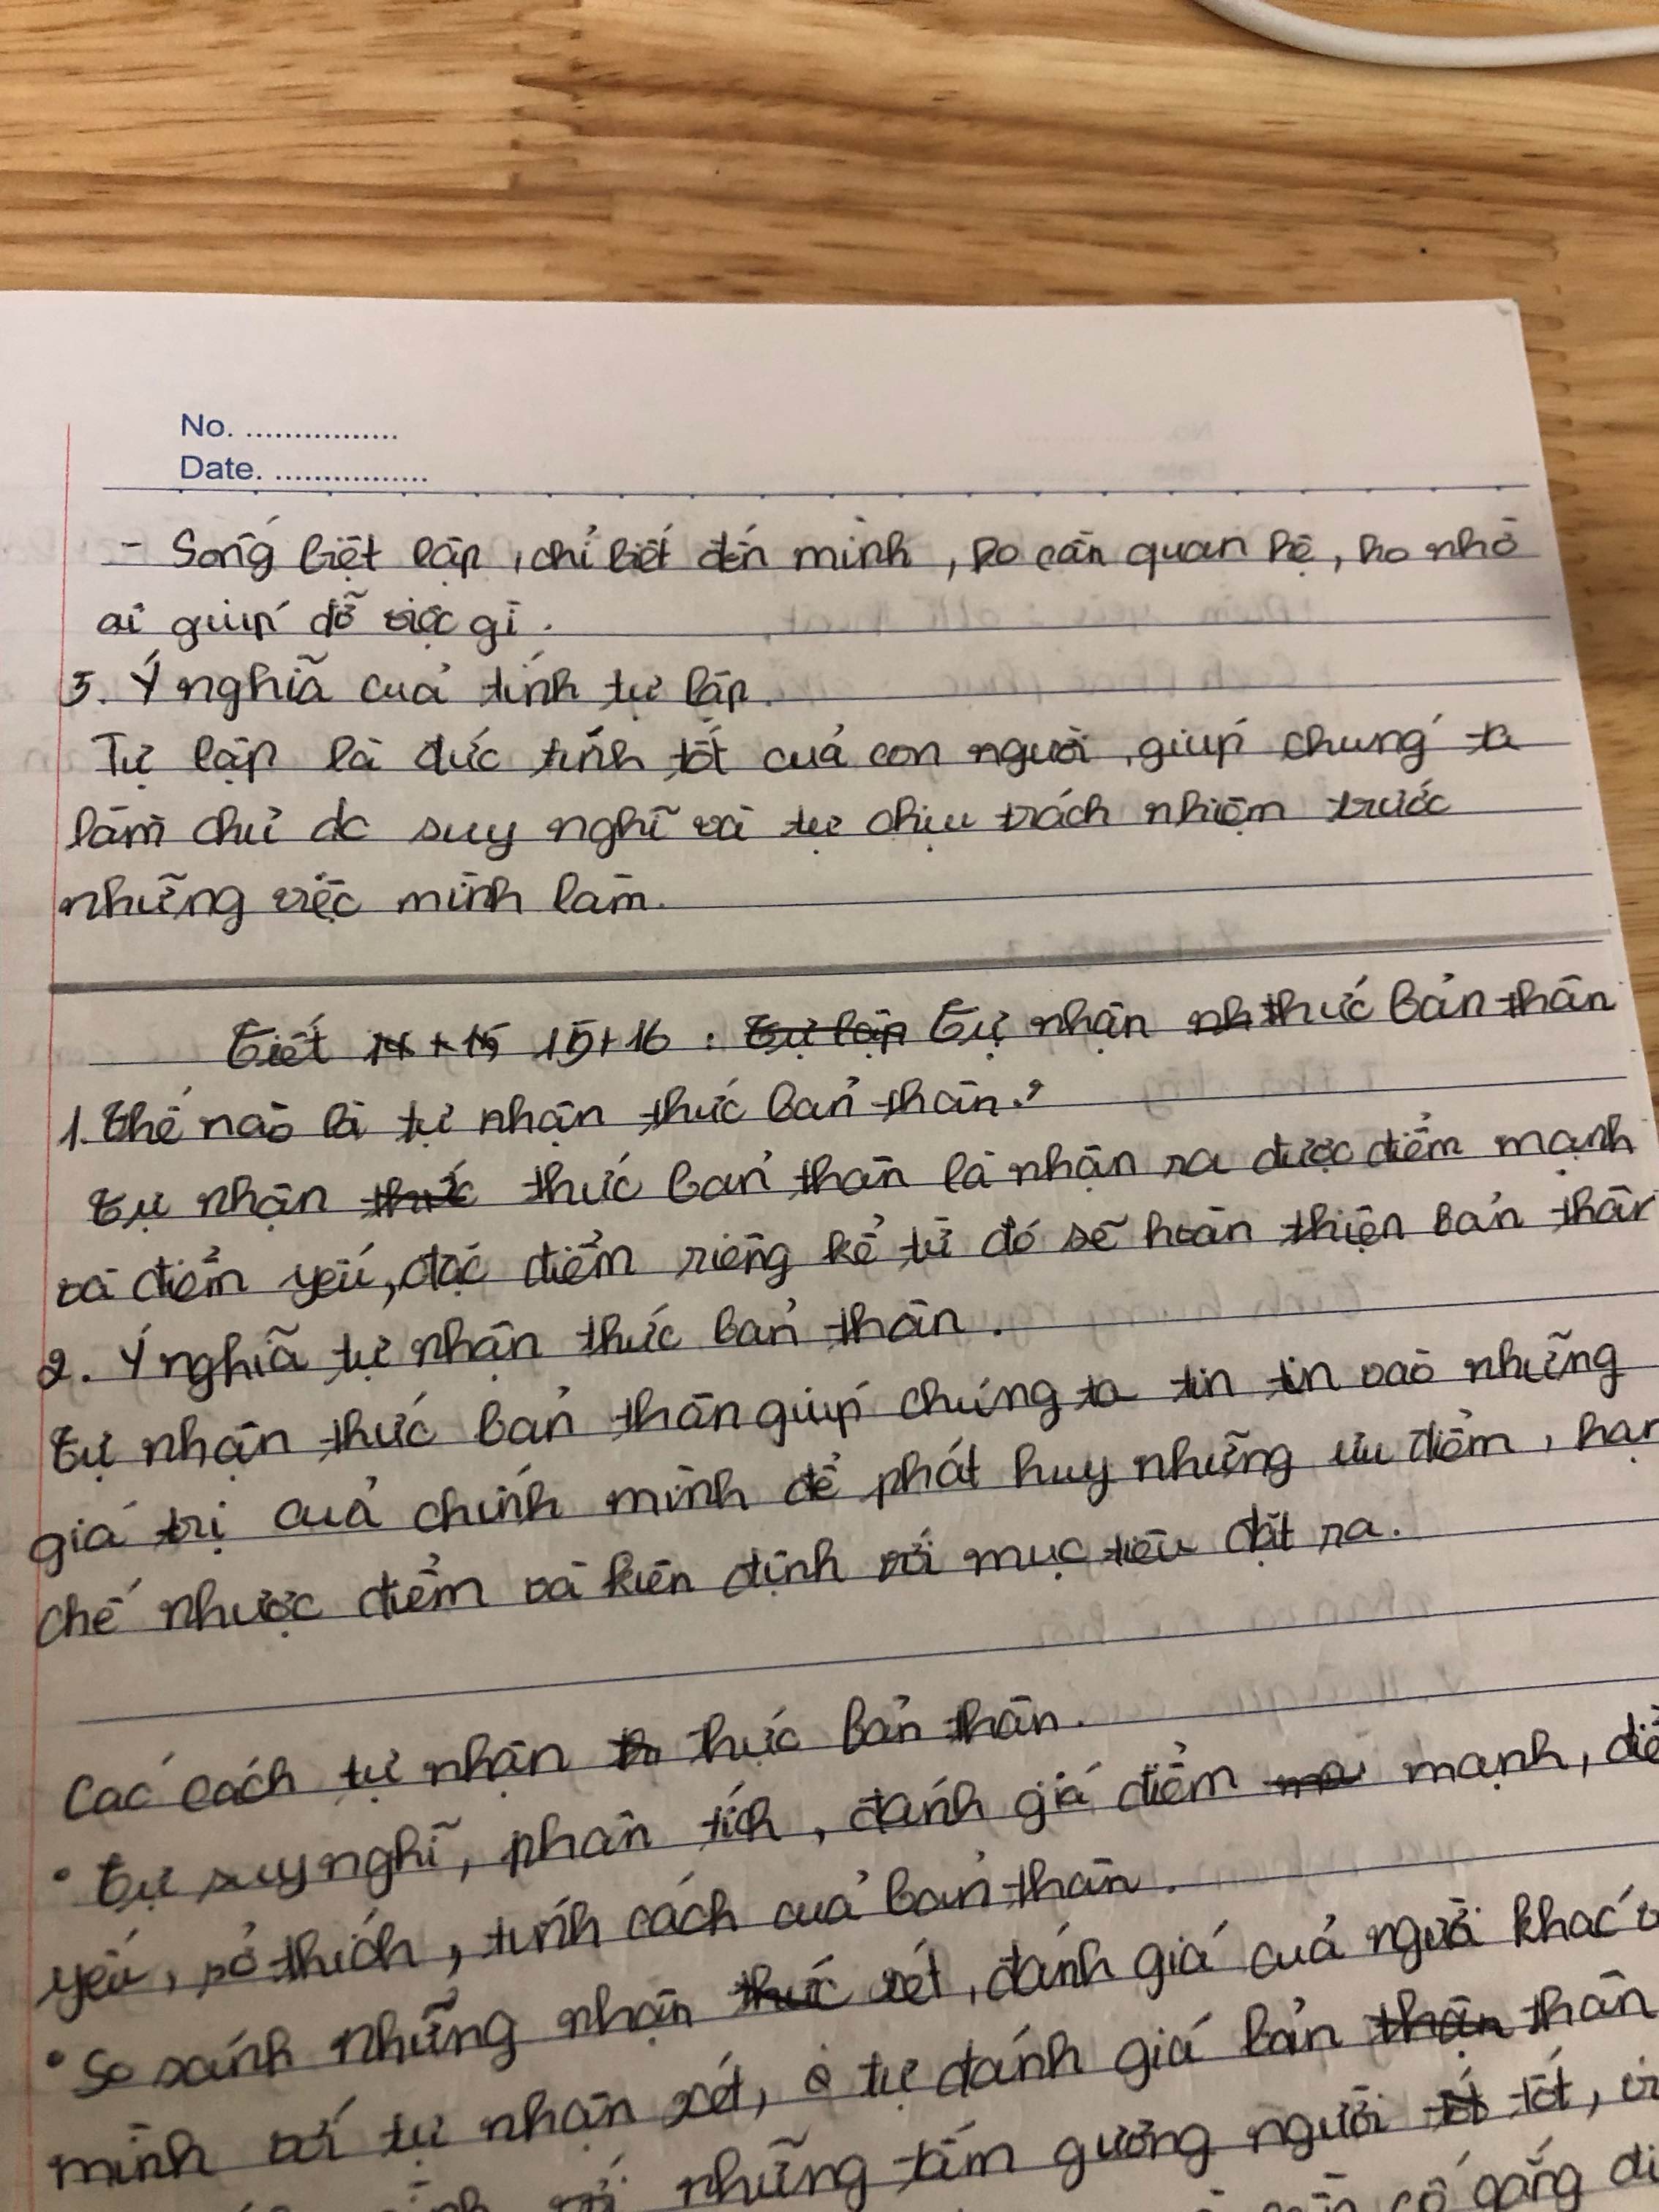 No. ................
Date. ................
- Sống biệt lập, chỉ biết đến mình, ko cần quan hệ, ko nhờ
ai giúp đỡ việc gì.
3. Ý nghĩa của tính tự lập.
Tự lập là đức tính tốt của con người, giúp chúng ta
làm chủ dc suy nghĩ và tự chịu trách nhiệm trước
những việc mình làm.
Tiết 14+15 15+16 : Tự lập Tự nhận nh thức bản thân
1. Thế nào là tự nhận thức bản thân?
Tự nhận thức thức bản thân là nhận ra được điểm mạnh
và điểm yếu, đặc điểm riêng kể từ đó sẽ hoàn thiện bản thân
2. Ý nghĩa tự nhận thức bản thân.
Tự nhận thức bản thân giúp chúng ta tin tin vào những
giá trị của chính mình để phát huy những ưu điểm, hạn
chế nhược điểm và kiên định với mục tiêu đặt ra.
Các cách tự nhận th thức bản thân.
• Tự suy nghĩ, phân tích, đánh giá điểm ma mạnh, điể
yếu, sở thích, tính cách của bản thân.
• So sánh những nhận thức xét, đánh giá của người khác v
mình với tự nhận xét, tự đánh giá bản thân thân
những tấm gương người tốt tốt, vi
cố gắng